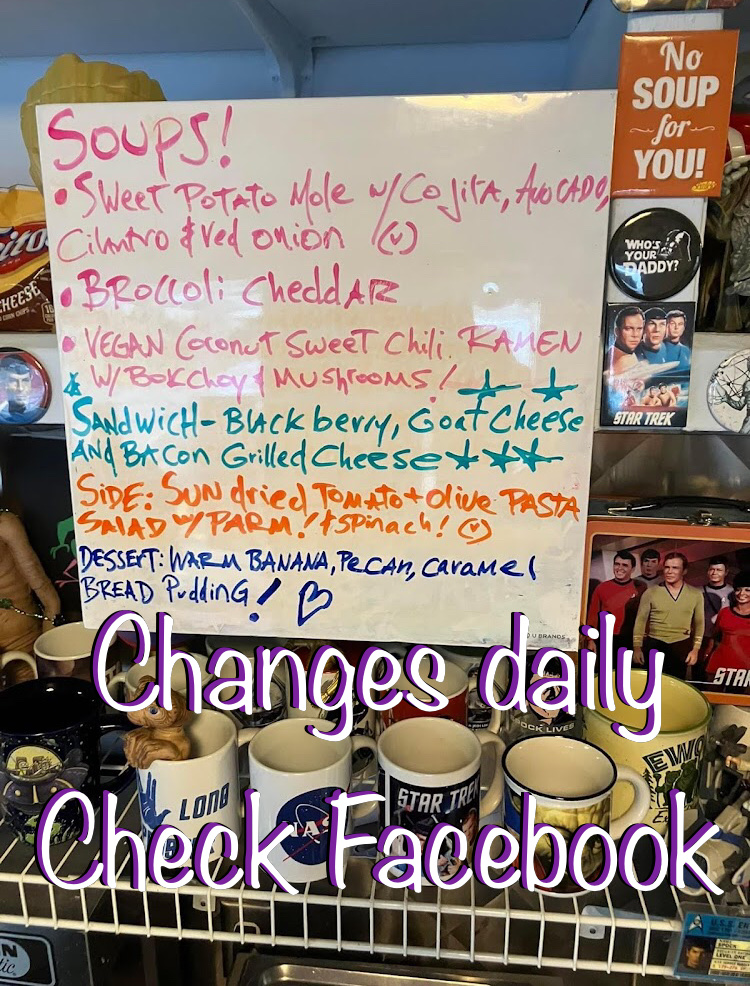 No
SOUP
for
YOU!
SOUPS!
• SWEET POTATO MOLE w/ COJITA, AVOCADO,
Cilantro & red onion (v)
• BROCCOLI CHEDDAR
• VEGAN COCONUT SWEET CHILI RAMEN
W/ BOKCHOY & MUSHROOMS!
SANDWICH - BLACKberry, Goat Cheese
AND BACON Grilled Cheese
SIDE: SUN dried TOMATO + olive PASTA
SALAD w/ PARM! + SPINACH! (v)
DESSERT: WARM BANANA, PECAN, caramel
BREAD PuddinG!
U BRANDS
CHEESE
WHO'S
YOUR
DADDY?
STAR TREK
STA
Changes daily
OCK LIVES
EWO
LONG
NAS
STAR TREK
Check Facebook
LEVEL ONE